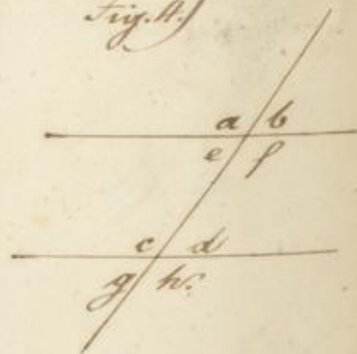 Fig. 4.)
a b
e f
c d
g h.